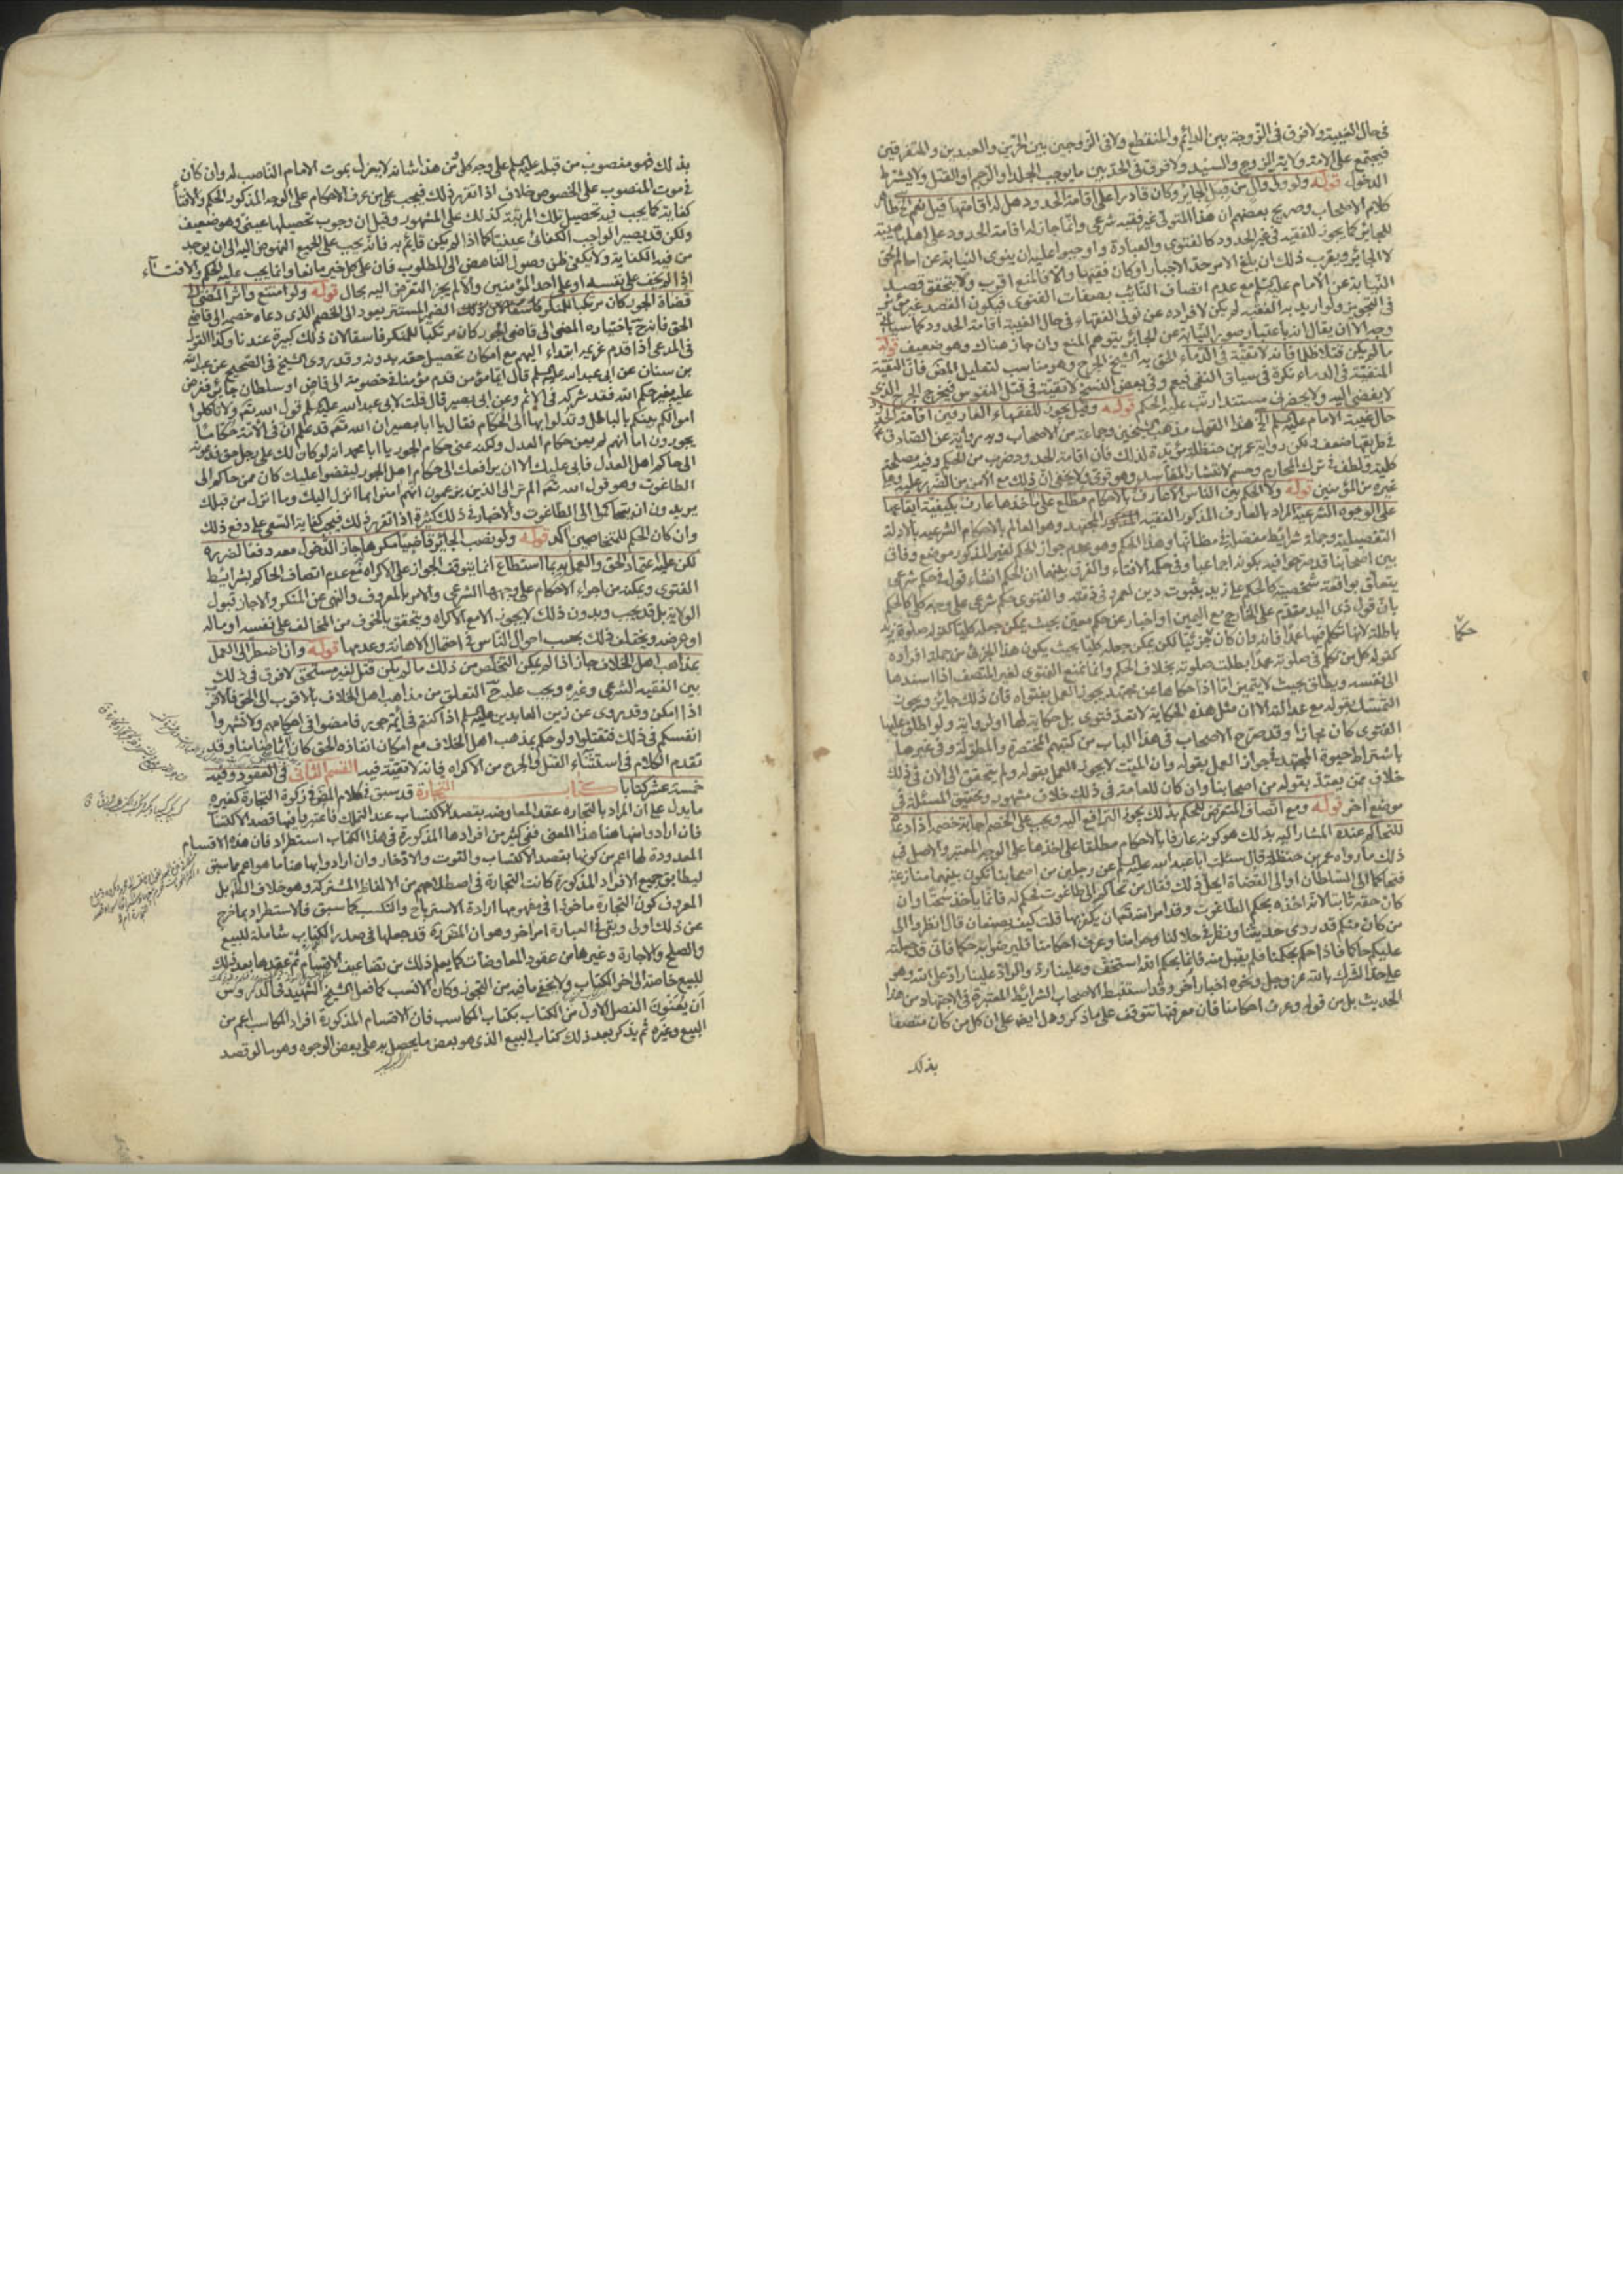 فى حال الغيبة ولا فرق فى الزوجة بين الدائم والمنقطع ولا فى الزوجين بين الحرين والعبدين والمتفرقين
فيجتمع على الامة ولاية الزوج والسيد ولا فرق فى الحد بين ما يوجب الجلد او الرجم او القتل ولا يشترط
الدخول قوله ولو ولى وال من قبل الجائر وكان قادرا على اقامة الحدود هل له اقامتها قيل نعم الخ ظاهر
كلام الاصحاب وصريح بعضهم ان هذا المتولى غير فقيه شرعى وانما جاز له اقامة الحدود على اهلها
للجائر كما يجوز للفقيه فى غير الحدود كالفتوى والعبادة واوجبوا عليه ان ينوى النيابة عن امام الحق
لا الجائر ويقرب ذلك ان بلغ الامر حد الاجبار او كان فقيها والا فالمنع اقرب ولا يتحقق قصد
النيابة عن الامام عليه السلم مع عدم اتصاف النائب بصفات الفتوى فيكون القصد غير مؤثر
فى التجويز ولو اريد به الفقيه لم يكن لافراده عن تولى الفقهاء فى حال الغيبة اقامة الحدود كما سياتى
وجه الا ان يقال انه باعتبار صورة النيابة عن الجائر يتوهم المنع وان جاز هناك وهو ضعيف قوله
ما لم يكن قتلا ظلما فانه لا تقية فى الدماء الحق به الشيخ الجرح وهو مناسب لتعليل المصنف فان التقية
المنفية فى الدماء نكرة فى سياق النفى فيعم وفى بعض النسخ لا تقية فى قتل النفوس فيخرج الجرح الذى
لا يفضى اليه ولا يحضرنى مستند ارتب عليه الحكم قوله وقيل يجوز للفقهاء العارفين اقامة الحدود
حال غيبة الامام عليه السلم الخ هذا القول مذهب الشيخين وجماعة من الاصحاب وبه رواية عن الصادق ع
فى طريقها ضعف ولكن رواية عمر بن حنظلة مؤيدة لذلك فان اقامة الحدود ضرب من الحكم وفيه مصلحة
كلية ولطف فى ترك المحارم وحسم لانتشار المفاسد وهو قوى ولا يخفى ان ذلك مع الامن من الضرر عليه وعلى
غيره من المؤمنين قوله ولا الحكم بين الناس الا عارف بالاحكام مطلع على ماخذها عارف بكيفية ايقاعها
على الوجوه الشرعية المراد بالعارف المذكور الفقيه المجتهد وهو العالم بالاحكام الشرعية بالادلة
التفصيلية وجملة شرائطه مفصلة فى مظانها وهذا الحكم وهو عدم جواز الحكم لغير المذكور موضع وفاق
بين اصحابنا قد صرحوا فيه بكونه اجماعيا وفى حكمه الافتاء والفرق بينهما ان الحكم انشاء قول فى حكم شرعى
يتعلق بواقعة شخصية كالحكم على زيد بثبوت دين لعمرو فى ذمته والفتوى حكم شرعى على وجه كلى كالحكم
بان قول ذى اليد مقدم على الخارج مع اليمين او اخبار عن حكم معين بحيث يمكن جعله كليا كقوله صلوة زيد
باطلة لانه تكلم فيها عمدا فانه وان كان جزئيا لكن يمكن جعله كليا بحيث يكون هذا الجزئى من جملة افراده
كقوله كل من تكلم فى صلوته عمدا بطلت صلوته بخلاف الحكم وانما تمتنع الفتوى لغير المتصف اذا اسندها
الى نفسه ويطلق بحيث لا يتميز اما اذا حكاها عن مجتهد يجوز العمل بفتواه فان ذلك جايز ويجوز
التمسك بقوله مع عدالته الا ان مثل هذه الحكاية لا تعد فتوى بل حكاية لها او لرواية ولو اطلق عليها
الفتوى كان مجازا وقد صرح الاصحاب فى هذا الباب من كتبهم المختصرة والمطولة وفى غيرها
باشتراط حيوة المجتهد فى جواز العمل بقوله وان الميت لا يجوز العمل بقوله ولم يتحقق الى الان فى ذلك
خلاف ممن يعتد بقوله من اصحابنا وان كان للعامة فى ذلك خلاف مشهور وتحقيق المسئلة فى
موضع اخر قوله ومع اتصاف المتعرض للحكم بذلك يجوز الترافع اليه ويجب على الخصم اجابة خصمه اذا دعاه
للتحاكم عنده المشار اليه بذلك هو كونه عارفا بالاحكام مطلقا على اخذها على الوجه المعتبر والاصل فى
ذلك ما رواه عمر بن حنظلة قال سئلت ابا عبد الله عليه السلم عن رجلين من اصحابنا تكون بينهما منازعة
فتحاكما الى السلطان او الى القضاة ايحل ذلك فقال من تحاكم الى طاغوت فحكم له فانما ياخذ سحتا وان
كان حقه ثابتا لانه اخذه بحكم الطاغوت وقد امر الله تعالى ان يكفر بها قلت كيف يصنعان قال انظروا الى
من كان منكم قد روى حديثنا ونظر فى حلالنا وحرامنا وعرف احكامنا فليرضوا به حكما فانى قد جعلته
عليكم حاكما فاذا حكم بحكمنا فلم يقبل منه فانما بحكم الله استخف وعلينا رد والراد علينا راد على الله وهو
على حد الشرك بالله عز وجل ونحوه اخبار اخر وقد استنبط الاصحاب الشرايط المعتبرة فى الاجتهاد من هذا
الحديث بل من قوله وعرف احكامنا فان معرفتها تتوقف على ما ذكر وهل ايضه على ان كل من كان متصفا
بذلك
حكما
بذلك فهو منصوب من قبله عليه السلم على وجه كلى ومن هذا شانه لا يعزل بموت الامام الناصب له وان كان
فى موت المنصوب على الخصوص خلاف اذا تقرر ذلك فيجب على من عرف الاحكام على الوجه المذكور الحكم والافتاء
كفاية كما يجب فيه تحصيل تلك المرتبة كذلك على المشهور وقيل ان وجوب تحصيلها عينى وهو ضعيف
ولكن قد يصير الواجب الكفائى عينيا كما اذا لم يكن قائم به فانه يجب على الجميع النهوض اليه الى ان يوجد
من فيه الكفاية ولا يكفى ظن وصول الناهض الى المطلوب فان على كل خير مانعا وانما يجب عليه الحكم والافتاء
اذا لم يخف على نفسه او على احد المؤمنين والا لم يجز التعرض اليه بحال قوله ولو امتنع واثر المضى الى
قضاة الجور كان مرتكبا للمنكر الضمير المستتر يعود الى الخصم الذى دعاه خصمه الى قاضى
الحق فانه ح باختياره المضى الى قاضى الجور كان مرتكبا للمنكر فاسقا لان ذلك كبيرة عندنا وكذا القول
فى المدعى اذا قدم غريمه ابتداء اليهم مع امكان تحصيل حقه بدونه وقد روى الشيخ فى الصحيح عن عبد الله
بن سنان عن ابى عبد الله عليه السلم قال ايما مؤمن قدم مؤمنا فى خصومة الى قاض او سلطان جائر فقضى
عليه بغير حكم الله فقد شركه فى الاثم وعن ابى بصير قال قلت لابى عبد الله عليه السلم قول الله تعم ولا تاكلوا
اموالكم بينكم بالباطل وتدلوا بها الى الحكام فقال يا ابا بصير ان الله تعم قد علم ان فى الامة حكاما
يجورون اما انهم لم يعن حكام العدل ولكنه عنى حكام الجور يا ابا محمد انه لو كان لك على رجل حق فدعوته
الى حاكم اهل العدل فابى عليك الا ان يرافعك الى حكام اهل الجور ليقضوا عليك كان ممن حاكم الى
الطاغوت وهو قول الله تعم الم تر الى الذين يزعمون انهم امنوا بما انزل اليك وما انزل من قبلك
يريدون ان يتحاكموا الى الطاغوت والاخبار فى ذلك كثيرة اذا تقرر ذلك فيجب كفاية السعى على دفع ذلك
وان كان الحكم للمتخاصمين اكد قوله ولو نصب الجائر قاضيا مكرها جاز الدخول معه دفعا لضرره
لكن عليه اعتماد الحق والعمل به ما استطاع انما يتوقف الجواز على الاكراه مع عدم اتصاف الحاكم بشرائيط
الفتوى ويمكنه من اجراء الاحكام على وجهها الشرعى والامر بالمعروف والنهى عن المنكر والا جاز قبول
الولاية بل قد يجب وبدون ذلك لا يجوز الا مع الاكراه ويتحقق بالخوف من المخالف على نفسه او ماله
او عرضه ويختلف ذلك بحسب احوال الناس فى احتمال الاهانة وعدمها قوله وان اضطر الى العمل
بمذاهب اهل الخلاف جاز اذا لم يمكن التخلص من ذلك ما لم يكن قتل لغير مستحق لا فرق فى ذلك
بين الفقيه الشرعى وغيره ويجب عليه ح التعلق من مذاهب اهل الخلاف بالاقرب الى الحق فالاقرب
اذا امكن وقد روى عن زين العابدين عليه السلم اذا كنتم فى ائمة جور فامضوا فى احكامهم ولا تشهروا
انفسكم فى ذلك فتقتلوا ولو حكم بمذهب اهل الخلاف مع امكان انفاذه الحق كان اثما ضامنا وقد
تقدم الكلام فى استثناء القتل والجرح من الاكراه فانه لا تقية فيه القسم الثانى فى العقود وفيه
خمسة عشر كتابا كتاب التجارة قد سبق فى كلام المص فى زكوة التجارة كغيره
ما يدل على ان المراد بالتجارة عقد المعاوضة بقصد الاكتساب عند التملك فاعتبر فيها قصد الاكتساب
فان ارادوا منها هنا هذا المعنى ففى كثير من افرادها المذكورة فى هذا الكتاب استطراد فان هذه الاقسام
المعدودة لها اعم من كونها بقصد الاكتساب والقوت والادخار وان ارادوا بها هنا ما هو اعم مما سبق
ليطابق جميع الافراد المذكورة كانت التجارة فى اصطلاحهم من الالفاظ المشتركة وهو خلاف الظاهر بل
المعروف كون التجارة ماخوذا فى مفهومها ارادة الاسترباح والتكسب كما سبق فالاستطراد بما خرج
عن ذلك اولى وبقى فى العبارة امر اخر وهو ان التجارة قد جعلها فى صدر الكتاب شاملة للبيع
والصلح والاجارة وغيرها من عقود المعاوضات كما يعلم ذلك من تضاعيف الاقسام ثم عقدها بعد ذلك
للبيع خاصة الى اخر الكتاب ولا يخفى ما فيه من التجوز وكان الانسب كما فعل الشيخ الشهيد فى الدروس
ان يعنون الفصل الاول من الكتاب بكتاب المكاسب فان الاقسام المذكورة افراد المكاسب اعم من
البيع وغيره ثم يذكر بعد ذلك كتاب البيع الذى هو بعض ما يحصل به على بعض الوجوه وهو ما لو قصد